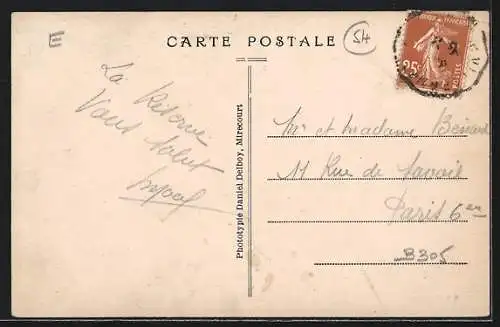 E
CARTE POSTALE
54
25c
POSTES
La Réserve
Vous salut
Phototypie Daniel Delboy, Mirecourt
Mr et Madame Besnard
11 Rue de Savoie
Paris 6e
B305